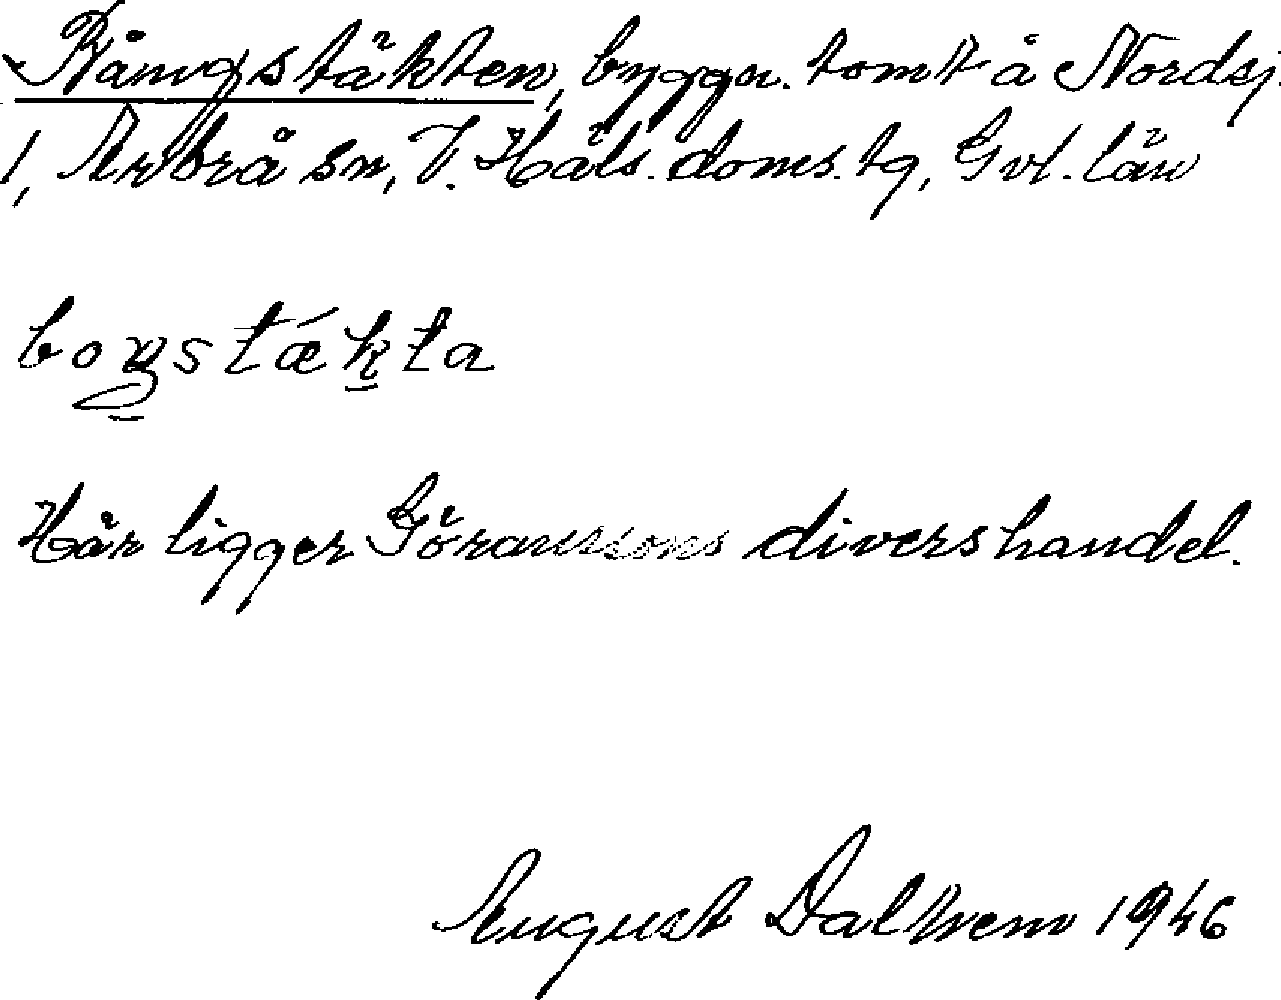 Bångstäkten, byggn. tomt å Nordsj.
1, Arbrå sn, V. Häls. doms. tg, Gvl. län
boŋstǽkta
Här ligger Göranssons divershandel.
August Dalhem 1946